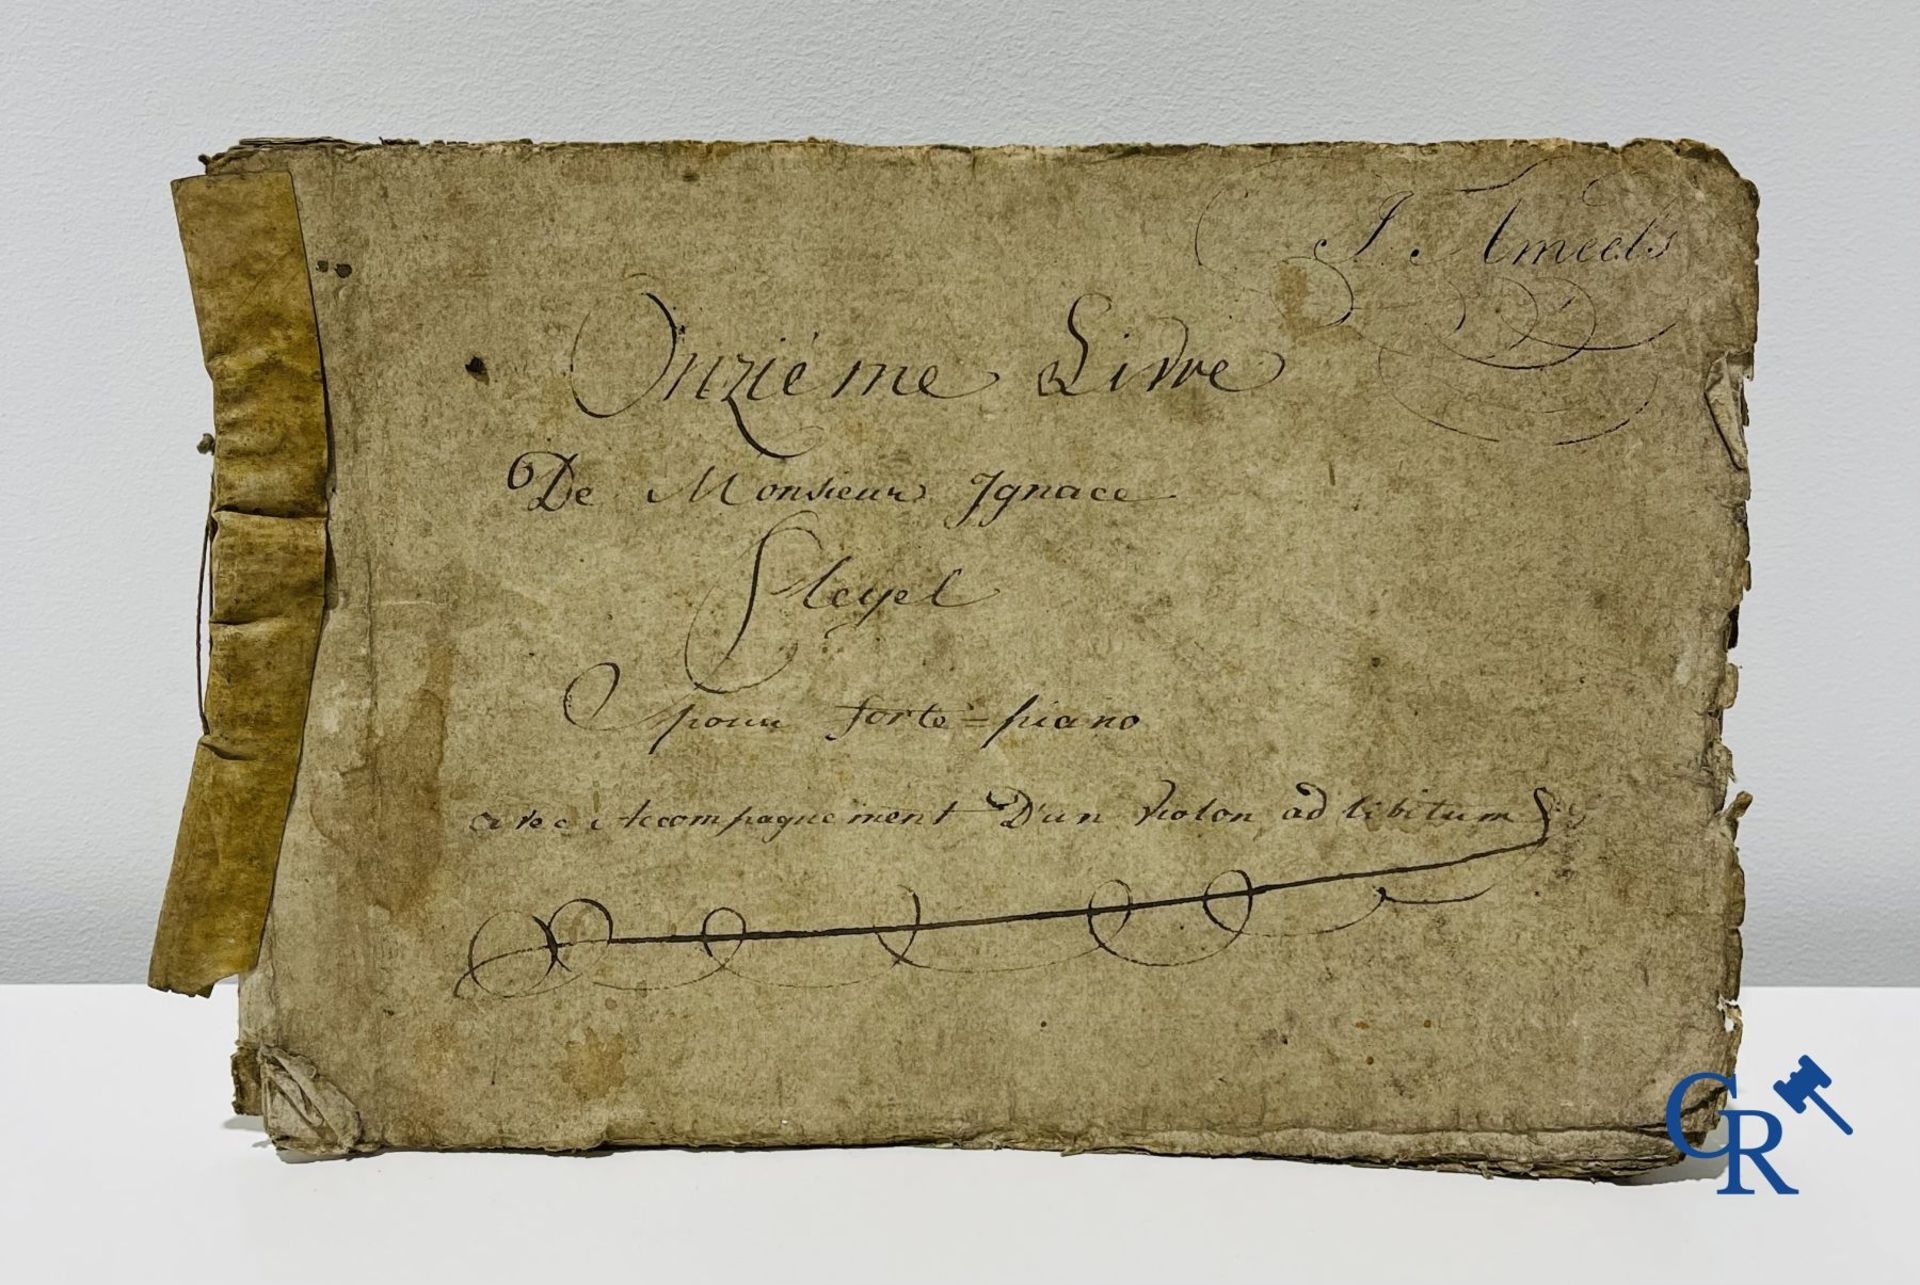 J. Ameels
Onziéme Livre
De Monsieur Ignace
Pleyel
pour forte=piano
avec Accompagnement D'un violon ad libitum
CR